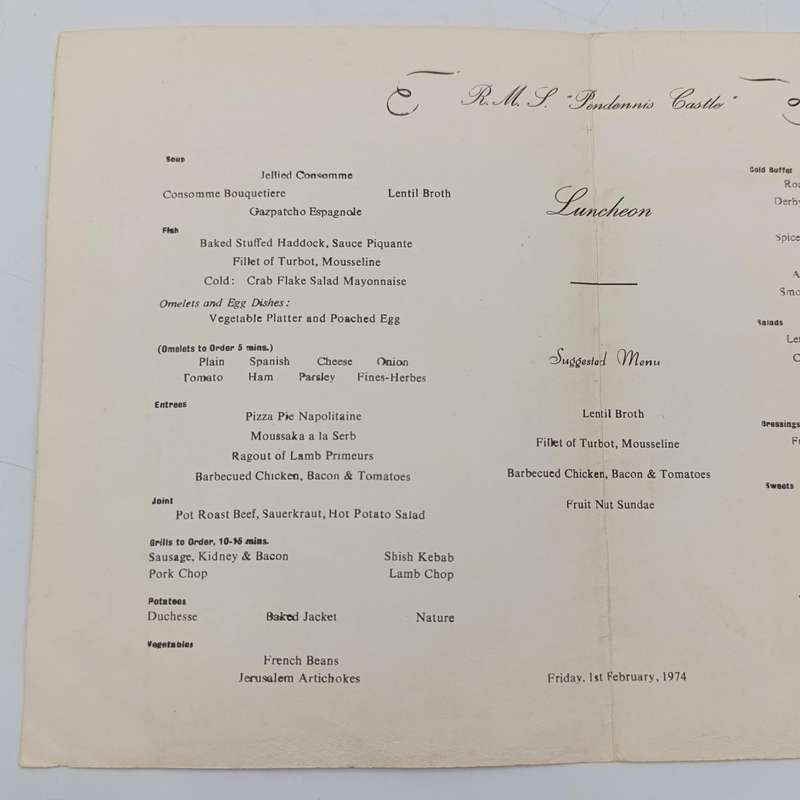 R. M. S. "Pendennis Castle"
Soup
Jellied Consomme
Consomme Bouquetiere Lentil Broth
Gazpatcho Espagnole
Fish
Baked Stuffed Haddock, Sauce Piquante
Fillet of Turbot, Mousseline
Cold: Crab Flake Salad Mayonnaise
Omelets and Egg Dishes:
Vegetable Platter and Poached Egg
(Omelets to Order 5 mins.)
Plain Spanish Cheese Onion
Tomato Ham Parsley Fines-Herbes
Entrees
Pizza Pie Napolitaine
Moussaka a la Serb
Ragout of Lamb Primeurs
Barbecued Chicken, Bacon & Tomatoes
Joint
Pot Roast Beef, Sauerkraut, Hot Potato Salad
Grills to Order, 10-15 mins.
Sausage, Kidney & Bacon Shish Kebab
Pork Chop Lamb Chop
Potatoes
Duchesse Baked Jacket Nature
Vegetables
French Beans
Jerusalem Artichokes
Luncheon
Suggested Menu
Lentil Broth
Fillet of Turbot, Mousseline
Barbecued Chicken, Bacon & Tomatoes
Fruit Nut Sundae
Friday, 1st February, 1974
Cold Buffet
Derby
Spice
Salads
Dressings
Sweets